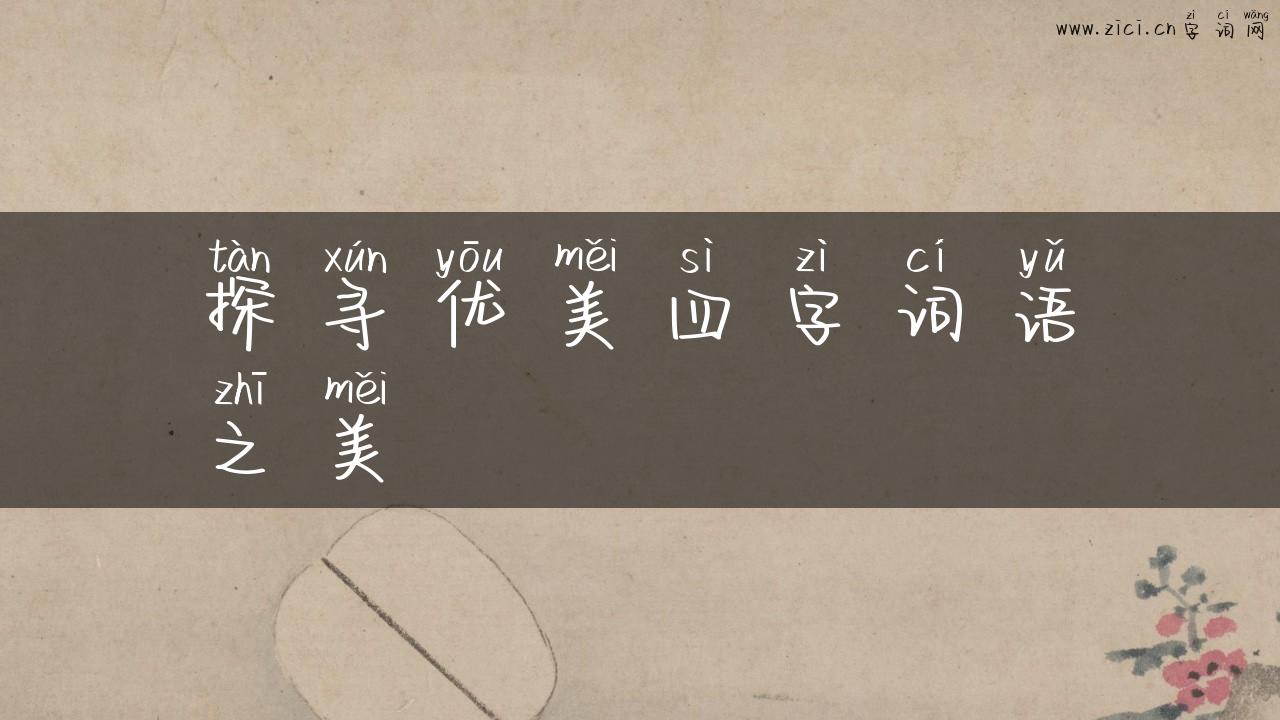 zì cí wǎng
www.zici.cn字词网
tàn xún yōu měi sì zì cí yǔ
探寻优美四字词语
zhī měi
之美